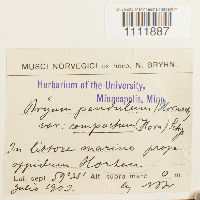 University of Minnesota Herbarium
1111887
MUSCI NORVEGICI ex herb. N. BRYHN.
Herbarium of the University,
Minneapolis, Minn.
Bryum pendulum (Hornsch
var: compactum (Horn.) Sch
In littore marino prope
oppidum Horten.
Lat. sept 59°25' Alt. supra mare 0 m.
Julio 1902.